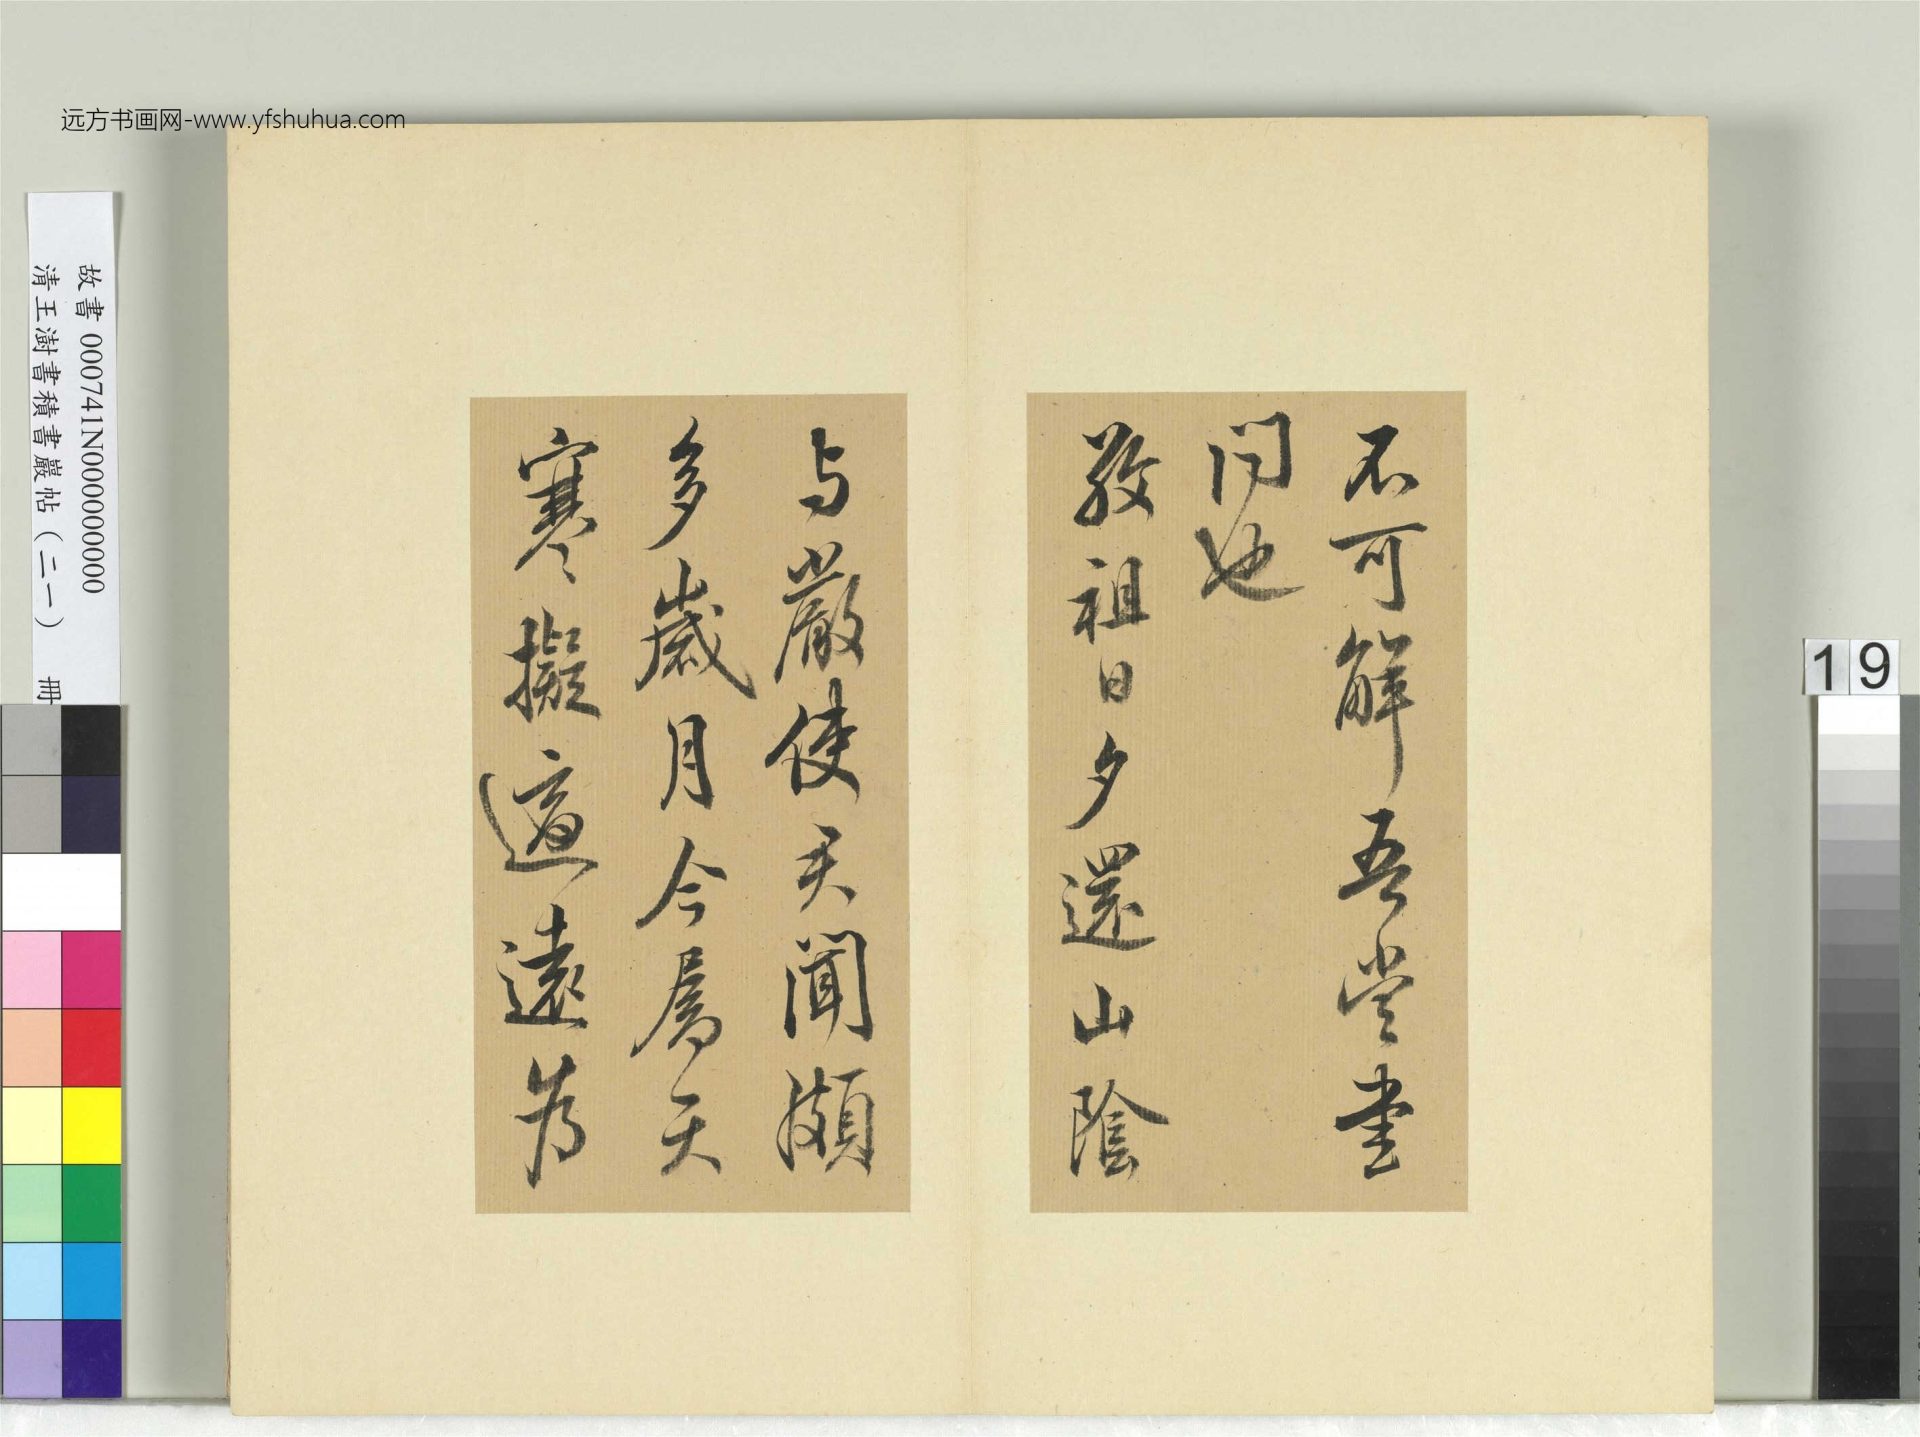 远方书画网-www.yfshuhua.com
故書 000741N000000000
清王澍書積書巖帖(二一) 冊
19
不可解吾當書
問也
敬祖日夕還山陰
与嚴使君聞頗
多歲月今屬天
寒擬適遠為